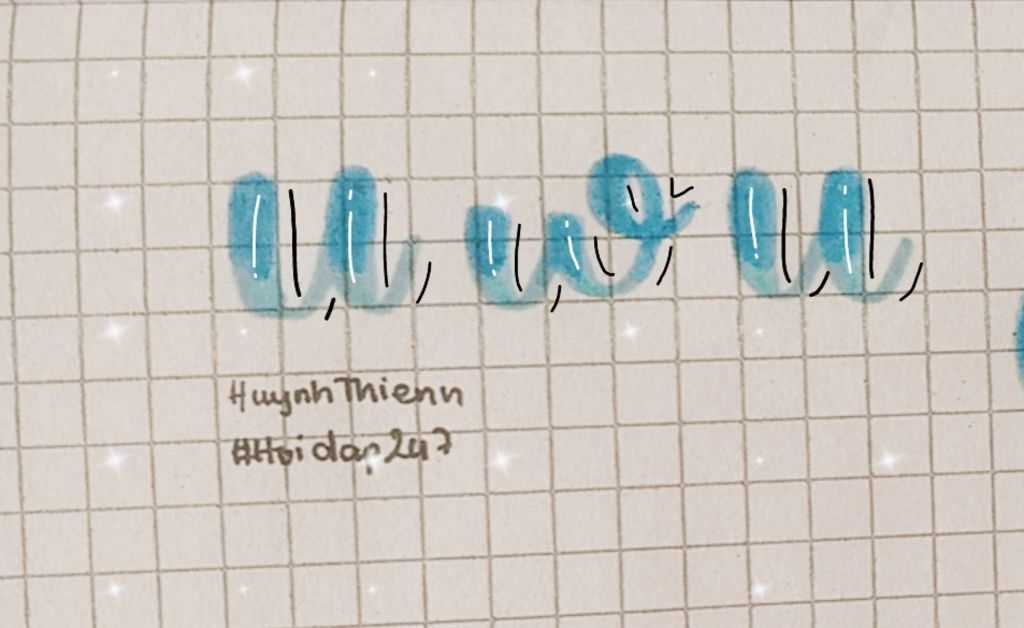 U w U
HuynhThienn
#Hoidap247